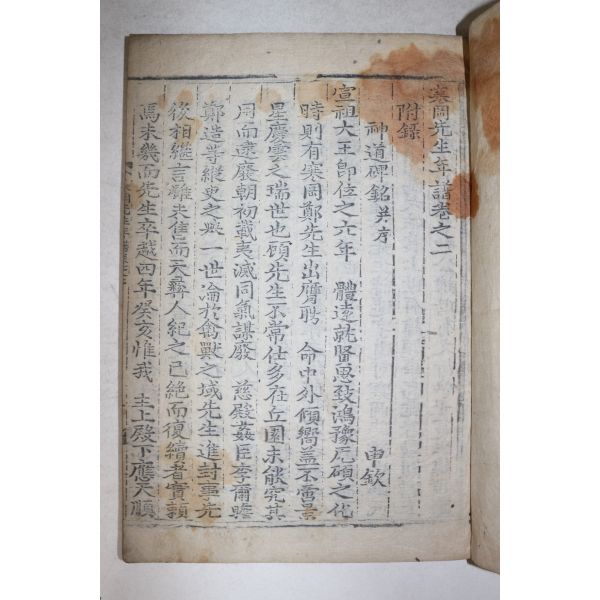 寒岡先生年譜卷之二
附錄
神道碑銘 幷序 申欽
宣祖大王卽位之六年 體遠就賢思致鴻豫厖碩之化
時則有寒岡鄭先生出膺聘 命中外傾嚮盖不啻景
星慶雲之瑞世也顧先生不常仕多在丘園未能究其
用而逮廢朝初載夷滅同氣謀廢 慈殿姦臣李爾瞻
鄭造等縱臾之擧一世淪於禽獸之域先生進封事先
後相繼言雖未售而天彝人紀之已絶而復續者實賴
焉未幾而先生卒越四年癸亥惟我 主上殿下應天順